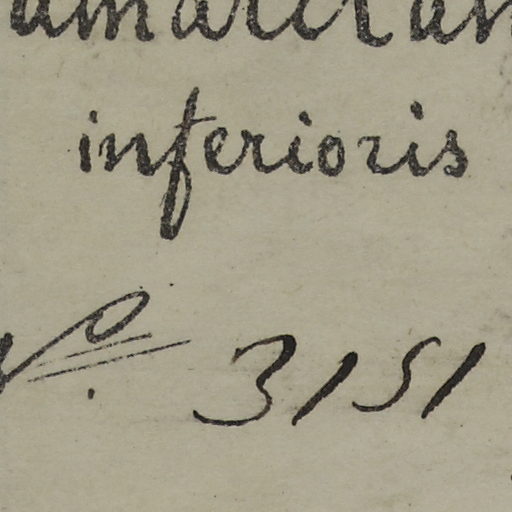 inferioris
Nº. 3151